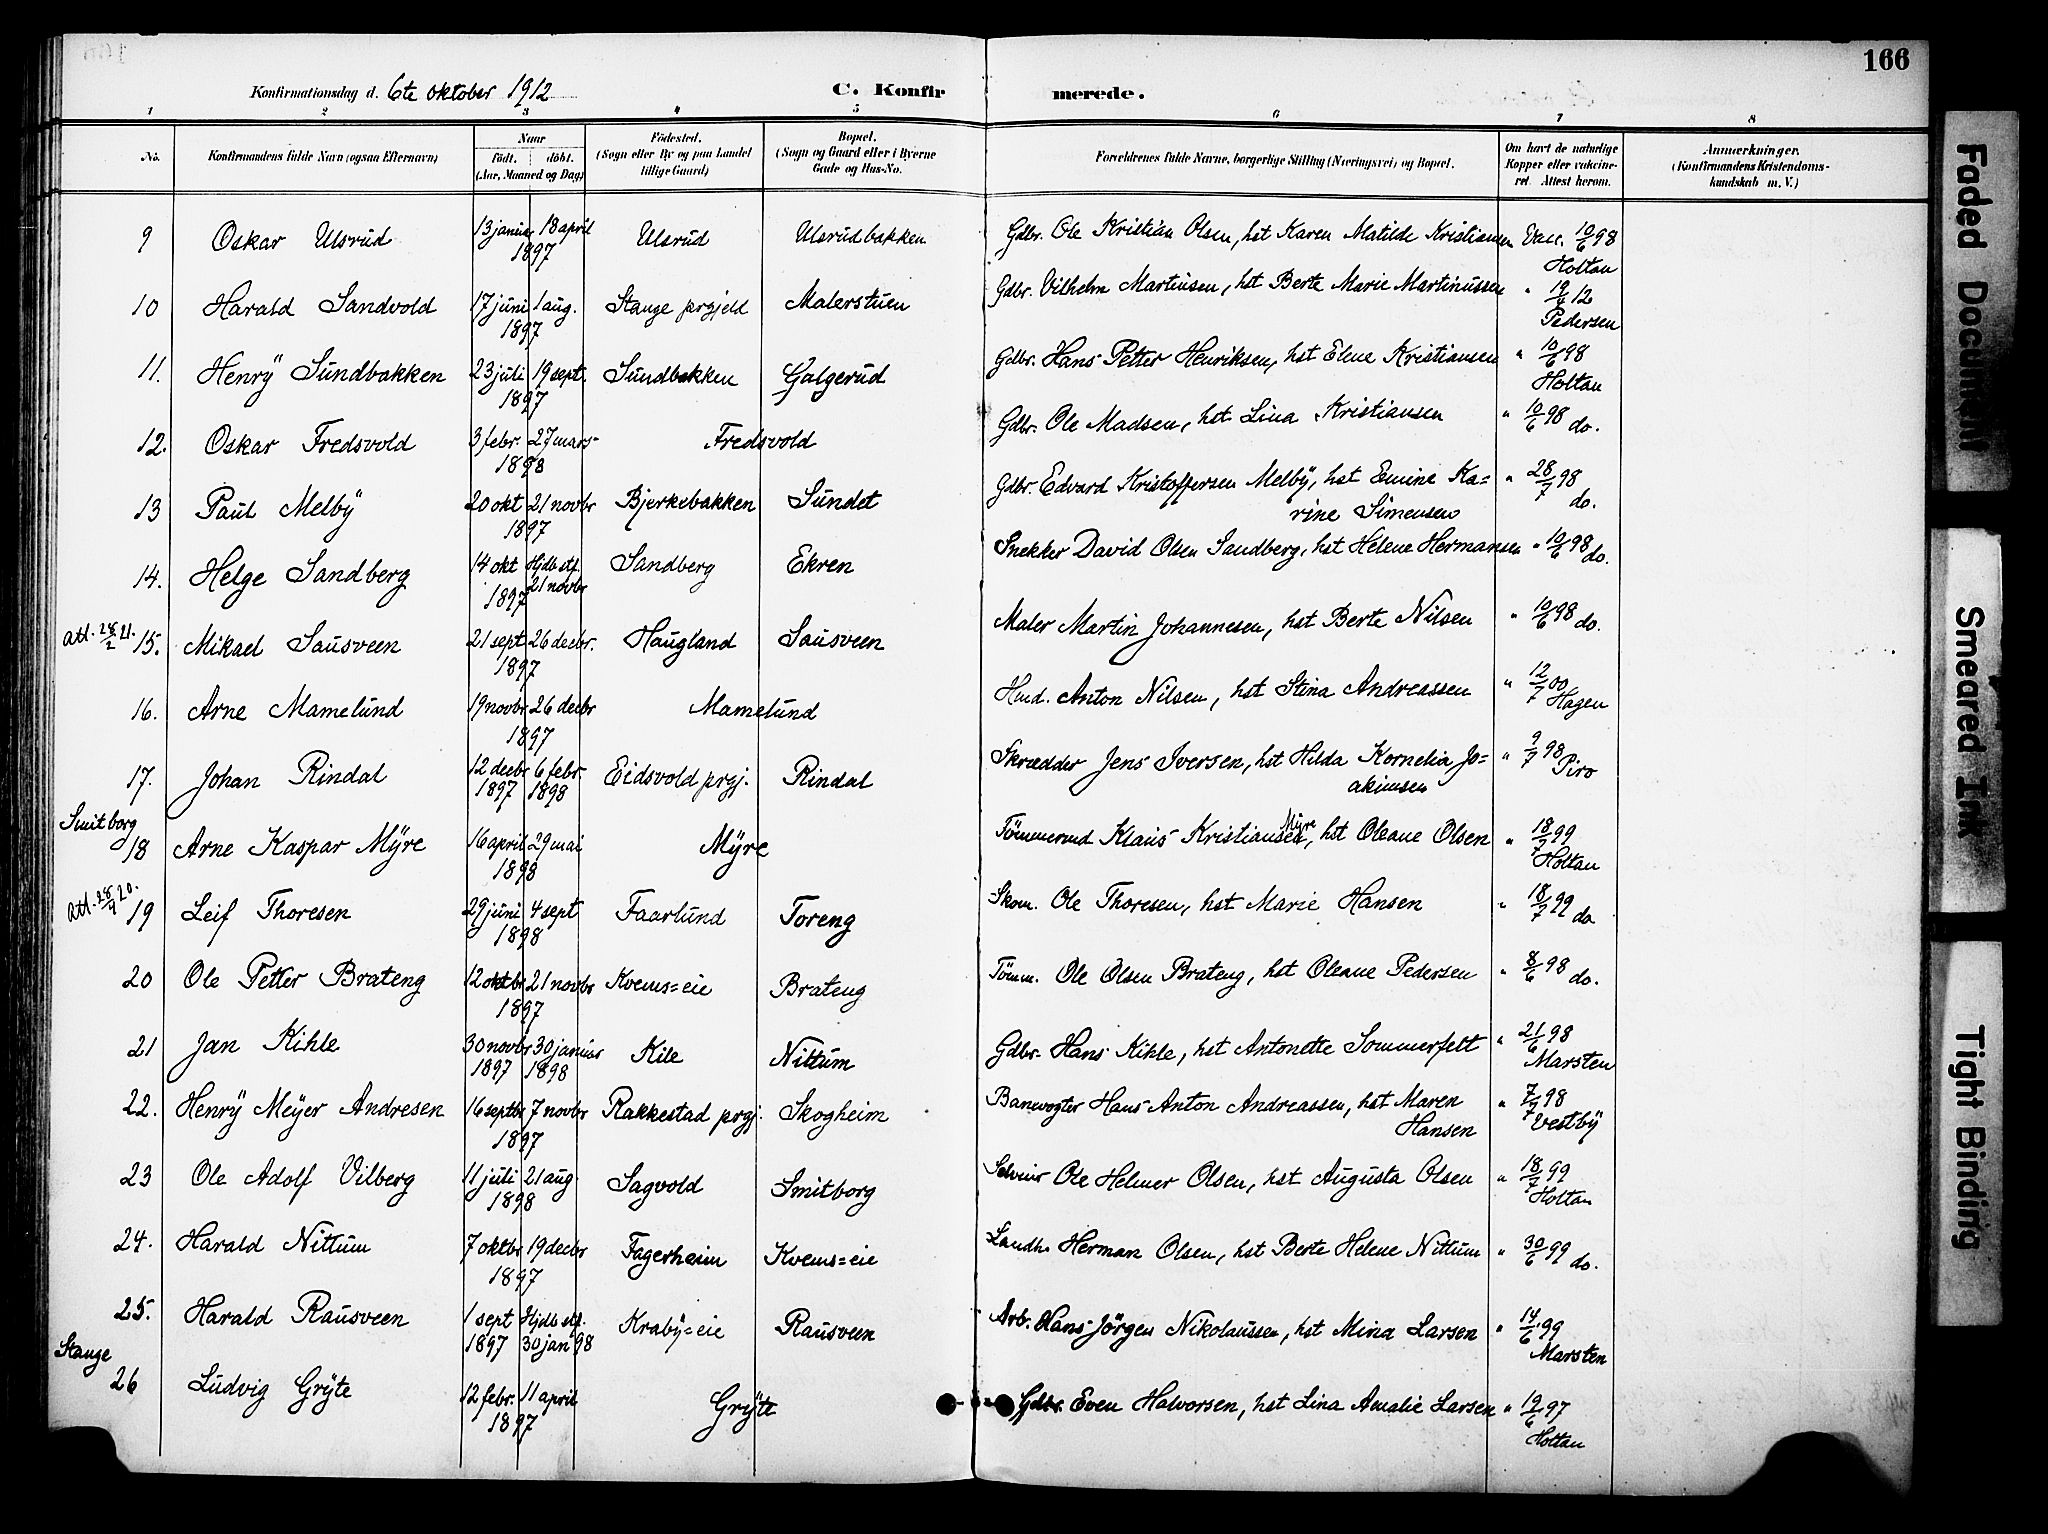 166
Konfirmationsdag d. 6te oktober 1912
C. Konfirmerede.
1 2 3 4 5 6 7 8
No. Konfirmandens fulde Navn (ogsaa Efternavn) Naar födt. döbt. (Aar, Maaned og Dag) Födested. (Sogn eller By og paa Landet tillige Gaard) Bopæl. (Sogn og Gaard eller i Byerne Gade og Hus-No. Forældrenes fulde Navne, borgerlige Stilling (Næringsvei) og Bopæl. Om havt de naturlige Kopper eller vaccineret. Attest herom. Anmærkninger. (Konfirmandens Kristendomskundskab m. V.)
9 Oskar Ulsrud 13 januar 18 april 1897 Ulsrud Ulsrudbakken Gdbr. Ole Kristian Olsen, hst Karen Matilde Kristiansen Vacc. 10/6 98 Holtan
10 Harald Sandvold 17 juni 1 aug. 1897 Stange prgjeld Malerstuen Gdbr. Vilhelm Martinsen, hst Berte Marie Martinussen " 19/6 12 Pedersen
11. Henrÿ Sundbakken 23 juli 19 sept. 1897 Sundbakken Galgerud Gdbr. Hans Petter Henriksen, hst Elene Kristiansen " 10/6 98 Holtan
12. Oskar Fredsvold 3 febr. 27 mars 1898 Fredsvold Gdbr. Ole Madsen, hst Lina Kristiansen " 10/6 98 do.
13 Paul Melbÿ 20 okt 21 novbr 1897 Bjerkebakken Sundet Gdbr. Edvard Kristoffersen Melbÿ, hst Emine Ka=rine Simensen " 28/7 98 do.
14. Helge Sandberg 14 okt Hjdb stf. 21 novbr 1897 Sandberg Ekren Snekker David Olsen Sandberg, hst Helene Hermansen " 10/6 98 do.
att. 28/2 21. 15. Mikael Sausveen 21 sept 26 decbr. 1897 Haugland Sausveen Maler Martin Johannesen, hst Berte Nilsen " 10/6 98 do.
16. Arne Mamelund 19 novbr 26 decbr 1897 Mamelund Hmd. Anton Nilsen, hst Stina Andreassen " 12/7 00 Hagen
17. Johan Rindal 12 decbr 1897 6 febr. 1898 Eidsvold prgj. Rindal Skrædder Jens Iversen, hst Hilda Kornelia Jo=akimsen " 9/7 98 Piro
Smitborg
18 Arne Kaspar Mÿre 16 april 29 mai 1898 Mÿre Tömmermd Klaus Kristiansen Mÿre, hst Oleane Olsen " 18/7 99 Holtan
att. 28/9 20. 19 Leif Thoresen 29 juni 4 sept 1898 Faarlund Toreng Skom. Ole Thoresen, hst Marie Hansen " 18/7 99 do
20 Ole Petter Brateng 12 oktbr 21 novbr 1897 Kvems=eie Brateng Tömm. Ole Olsen Brateng, hst Oleane Pedersen " 8/6 98 do.
21 Jan Kihle 30 novbr 1897 30 januar 1898 Kile Nittum Gdbr. Hans Kihle, hst Antonette Sommerfelt " 21/6 98 Marsten
22. Henrÿ Meÿer Andresen 16 septbr 7 novbr 1897 Rakkestad prgj. Skogheim Banevogter Hans Anton Andreassen, hst Maren Hansen " 7/7 98 Vestbÿ
23 Ole Adolf Vilberg 11 juli 21 aug. 1898 Sagvold Smitborg Selveier Ole Helmer Olsen, hst Augusta Olsen " 18/7 99 Holtan
24. Harald Nittum 7 oktbr 19 decbr 1897 Fagerheim Kvems=eie Landh. Herman Olsen, hst Berte Helene Nittum " 30/6 99 do.
25. Harald Rausveen 1 sept 1897 Hjdb stf. 30 jan 98 Krabÿ=eie Rausveen Arb. Hans Jörgen Nikolaussen, hst Mina Larsen " 14/6 99 Marsten
Stange
26 Ludvig Grÿte 12 febr. 11 april 1897 Grÿte Gdbr. Even Halvorsen, hst Lina Amalie Larsen " 19/6 97 Holtan
Faded Document
Smeared Ink
Tight Binding